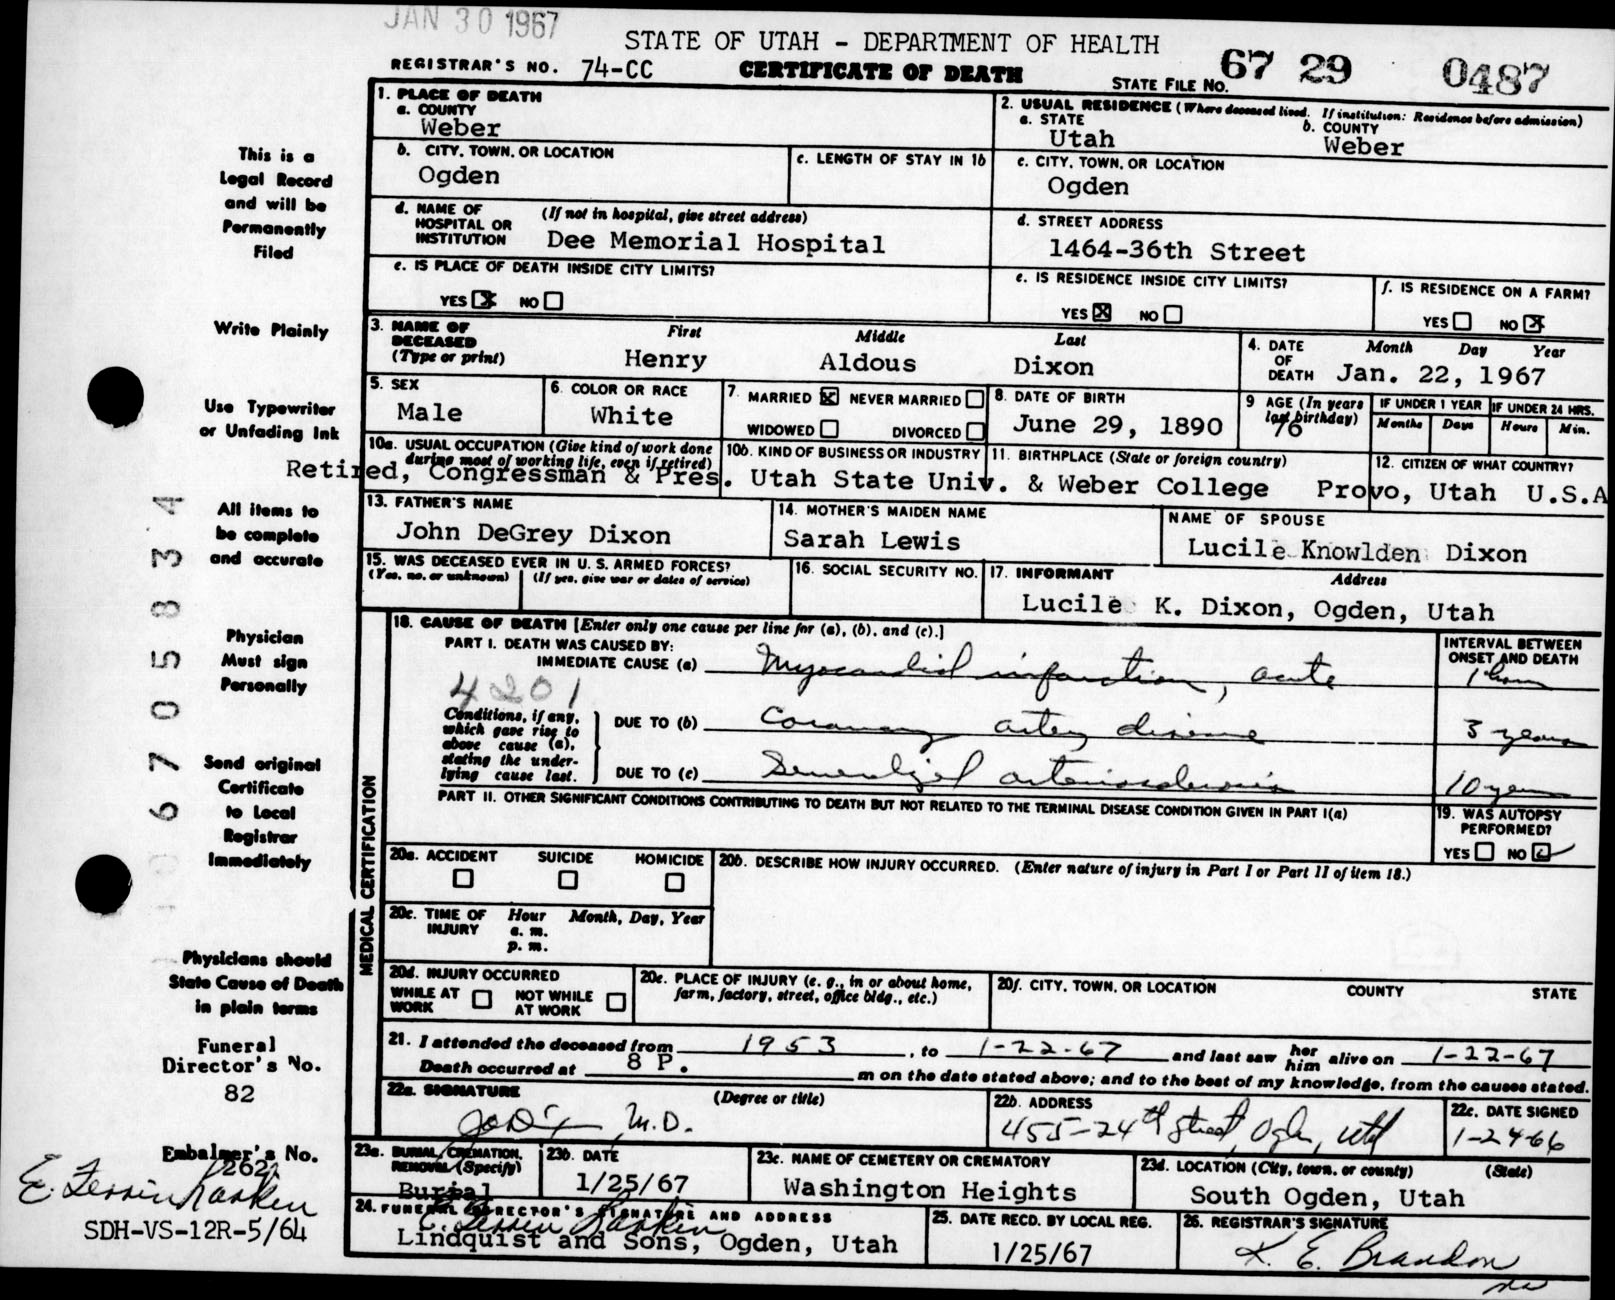 JAN 30 1967
STATE OF UTAH - DEPARTMENT OF HEALTH
REGISTRAR'S NO. 74-CC CERTIFICATE OF DEATH STATE FILE NO. 67 29 0487
This is a Legal Record and will be Permanently Filed
1. PLACE OF DEATH
a. COUNTY
Weber
2. USUAL RESIDENCE (Where deceased lived. If institution: Residence before admission)
a. STATE b. COUNTY
Utah Weber
b. CITY, TOWN, OR LOCATION c. LENGTH OF STAY IN 1b
Ogden
c. CITY, TOWN, OR LOCATION
Ogden
d. NAME OF HOSPITAL OR INSTITUTION (If not in hospital, give street address)
Dee Memorial Hospital
d. STREET ADDRESS
1464-36th Street
e. IS PLACE OF DEATH INSIDE CITY LIMITS?
YES X NO
e. IS RESIDENCE INSIDE CITY LIMITS?
YES X NO
f. IS RESIDENCE ON A FARM?
YES NO X
Write Plainly
3. NAME OF DECEASED (Type or print) First Middle Last
Henry Aldous Dixon
4. DATE OF DEATH Month Day Year
Jan. 22, 1967
Use Typewriter or Unfading Ink
5. SEX
Male
6. COLOR OR RACE
White
7. MARRIED X NEVER MARRIED
WIDOWED DIVORCED
8. DATE OF BIRTH
June 29, 1890
9 AGE (In years last birthday)
76
IF UNDER 1 YEAR IF UNDER 24 HRS.
Months Days Hours Min.
10a. USUAL OCCUPATION (Give kind of work done during most of working life, even if retired)
10b. KIND OF BUSINESS OR INDUSTRY
11. BIRTHPLACE (State or foreign country)
12. CITIZEN OF WHAT COUNTRY?
Retired, Congressman & Pres. Utah State Univ. & Weber College Provo, Utah U.S.A
All items to be complete and accurate
13. FATHER'S NAME
John DeGrey Dixon
14. MOTHER'S MAIDEN NAME
Sarah Lewis
NAME OF SPOUSE
Lucile Knowlden Dixon
15. WAS DECEASED EVER IN U. S. ARMED FORCES?
(Yes, no, or unknown) (If yes, give war or dates of service)
16. SOCIAL SECURITY NO.
17. INFORMANT Address
Lucile K. Dixon, Ogden, Utah
6705834
Physician Must sign Personally
MEDICAL CERTIFICATION
18. CAUSE OF DEATH [Enter only one cause per line for (a), (b), and (c).]
PART I. DEATH WAS CAUSED BY:
INTERVAL BETWEEN ONSET AND DEATH
IMMEDIATE CAUSE (a) Myocardial infarction, acute 1 hour
4201
Conditions, if any, which gave rise to above cause (a), stating the underlying cause last.
DUE TO (b) Coronary artery disease 3 years
DUE TO (c) Generalized arteriosclerosis 10 years
PART II. OTHER SIGNIFICANT CONDITIONS CONTRIBUTING TO DEATH BUT NOT RELATED TO THE TERMINAL DISEASE CONDITION GIVEN IN PART I(a)
19. WAS AUTOPSY PERFORMED?
YES NO
Send original Certificate to Local Registrar Immediately
20a. ACCIDENT SUICIDE HOMICIDE
20b. DESCRIBE HOW INJURY OCCURRED. (Enter nature of injury in Part I or Part II of item 18.)
20c. TIME OF INJURY Hour Month, Day, Year
a. m.
p. m.
Physicians should State Cause of Death in plain terms
20d. INJURY OCCURRED
WHILE AT WORK NOT WHILE AT WORK
20e. PLACE OF INJURY (e. g., in or about home, farm, factory, street, office bldg., etc.)
20f. CITY, TOWN, OR LOCATION COUNTY STATE
21. I attended the deceased from 1953, to 1-22-67 and last saw her him alive on 1-22-67
Death occurred at 8 P. m on the date stated above; and to the best of my knowledge, from the causes stated.
Funeral Director's No.
82
22a. SIGNATURE (Degree or title)
M.D.
22b. ADDRESS
455-24th Street, Ogden, Utah
22c. DATE SIGNED
1-24-66
Embalmer's No.
262
E. Ferrin Larkin
SDH-VS-12R-5/64
23a. BURIAL, CREMATION, REMOVAL (Specify)
Burial
23b. DATE
1/25/67
23c. NAME OF CEMETERY OR CREMATORY
Washington Heights
23d. LOCATION (City, town, or county) (State)
South Ogden, Utah
24. FUNERAL DIRECTOR'S SIGNATURE AND ADDRESS
E. Ferrin Larkin
Lindquist and Sons, Ogden, Utah
25. DATE RECD. BY LOCAL REG.
1/25/67
26. REGISTRAR'S SIGNATURE
K. E. Brandon